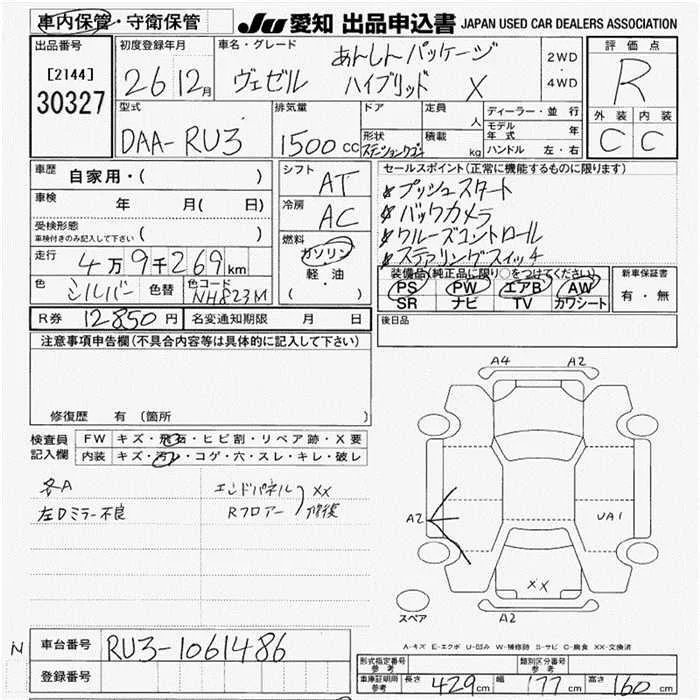 車内保管・守衛保管 JU 愛知 出品申込書 JAPAN USED CAR DEALERS ASSOCIATION
出品番号 初度登録年月 車名・グレード あんしんパッケージ 2WD 評価点
[2144] 26 12月 ヴェゼル ハイブリッド X ・ 4WD R
30327 型式 排気量 ドア 定員 人 ディーラー・並行 外装 内装
DAA-RU3 1500cc 形状 ステーションワゴン 積載 kg モデル年式 年 C C
ハンドル 左・右
車歴 自家用・( ) シフト AT セールスポイント(正常に機能するものに限ります)
車検 年 月( 日) 冷房 AC プッシュスタート
受検形態 バックカメラ
車検付きのみ記入して下さい ( ) 燃料 ガソリン クルーズコントロール
走行 4万9千269km 軽・油 ステアリングスイッチ
色 シルバー 色替 色コード NH823M (・ ) 装備品(純正品に限り○をつけてください) 新車保証書
PS PW エアB AW 有・無
SR ナビ TV カワシート
R券 12850円 名変通知期限 月 日 後日品
注意事項申告欄(不具合内容等は具体的に記入して下さい)
修復歴 有 (箇所 )
検査員記入欄 FW キズ・飛石・ヒビ割・リペア跡・X要
内装 キズ・汚レ・コゲ・穴・スレ・キレ・破レ
各A エンドパネル XX
左Dミラー不良 Rフロアー 修復
A4 A2
A2 UA1
XX
スペア A2
A-キズ E-エクボ U-凹み W-補修跡 S-サビ C-腐食 XX-交換済
N 車台番号 RU3-1061486
登録番号
形式指定番号 参考 類別区分番号 参考
車庫証明用 参考 長さ 429cm 幅 177cm 高さ 160cm